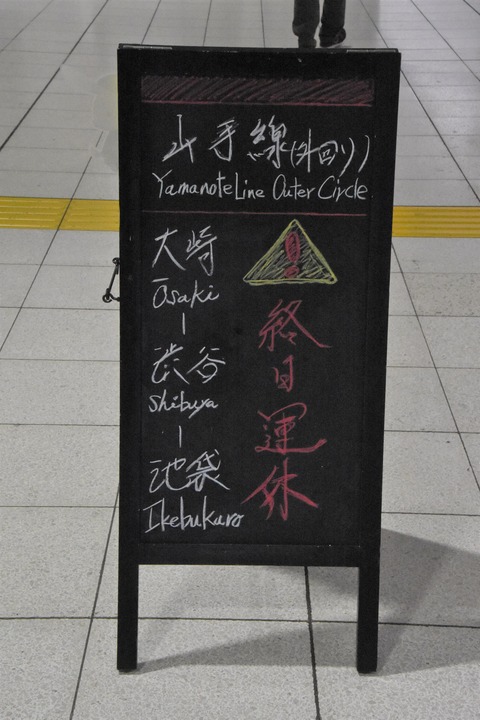 山手線(外回り)
Yamanote Line Outer Circle
大崎
Ōsaki
|
渋谷
Shibuya
|
池袋
Ikebukuro
!
終日運休